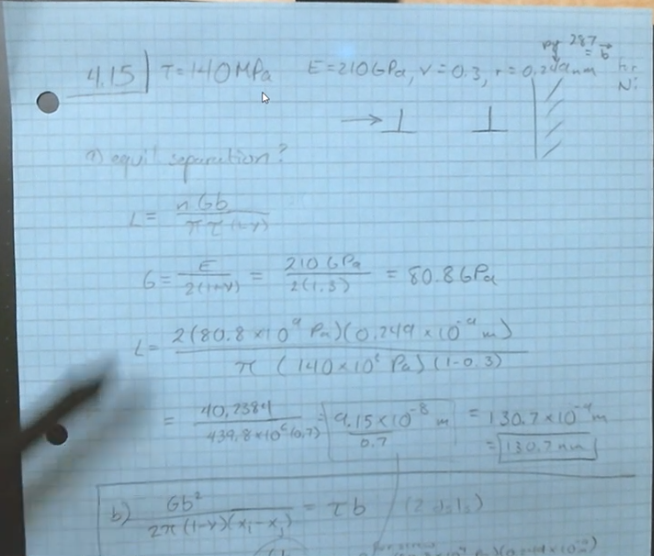 pg 287
4.15 τ = 140 MPa E = 210 GPa, ν = 0.3, r = 0.249 nm = b⃗
Ni
→ ⊥ ⊥
a) equil separation?
L = nGb / πτ(1-ν)
G = E / 2(1+ν) = 210 GPa / 2(1.3) = 80.8 GPa
L = 2(80.8 × 10⁹ Pa)(0.249 × 10⁻⁹ m) / π (140 × 10⁶ Pa)(1-0.3)
= 40.2384 / 439.8 × 10⁶ (0.7) = 9.15 × 10⁻⁸ m / 0.7 = 130.7 × 10⁻⁹ m
= 130.7 nm
b) Gb² / 2π(1-ν)(xᵢ-xⱼ) = τb (2 disls)